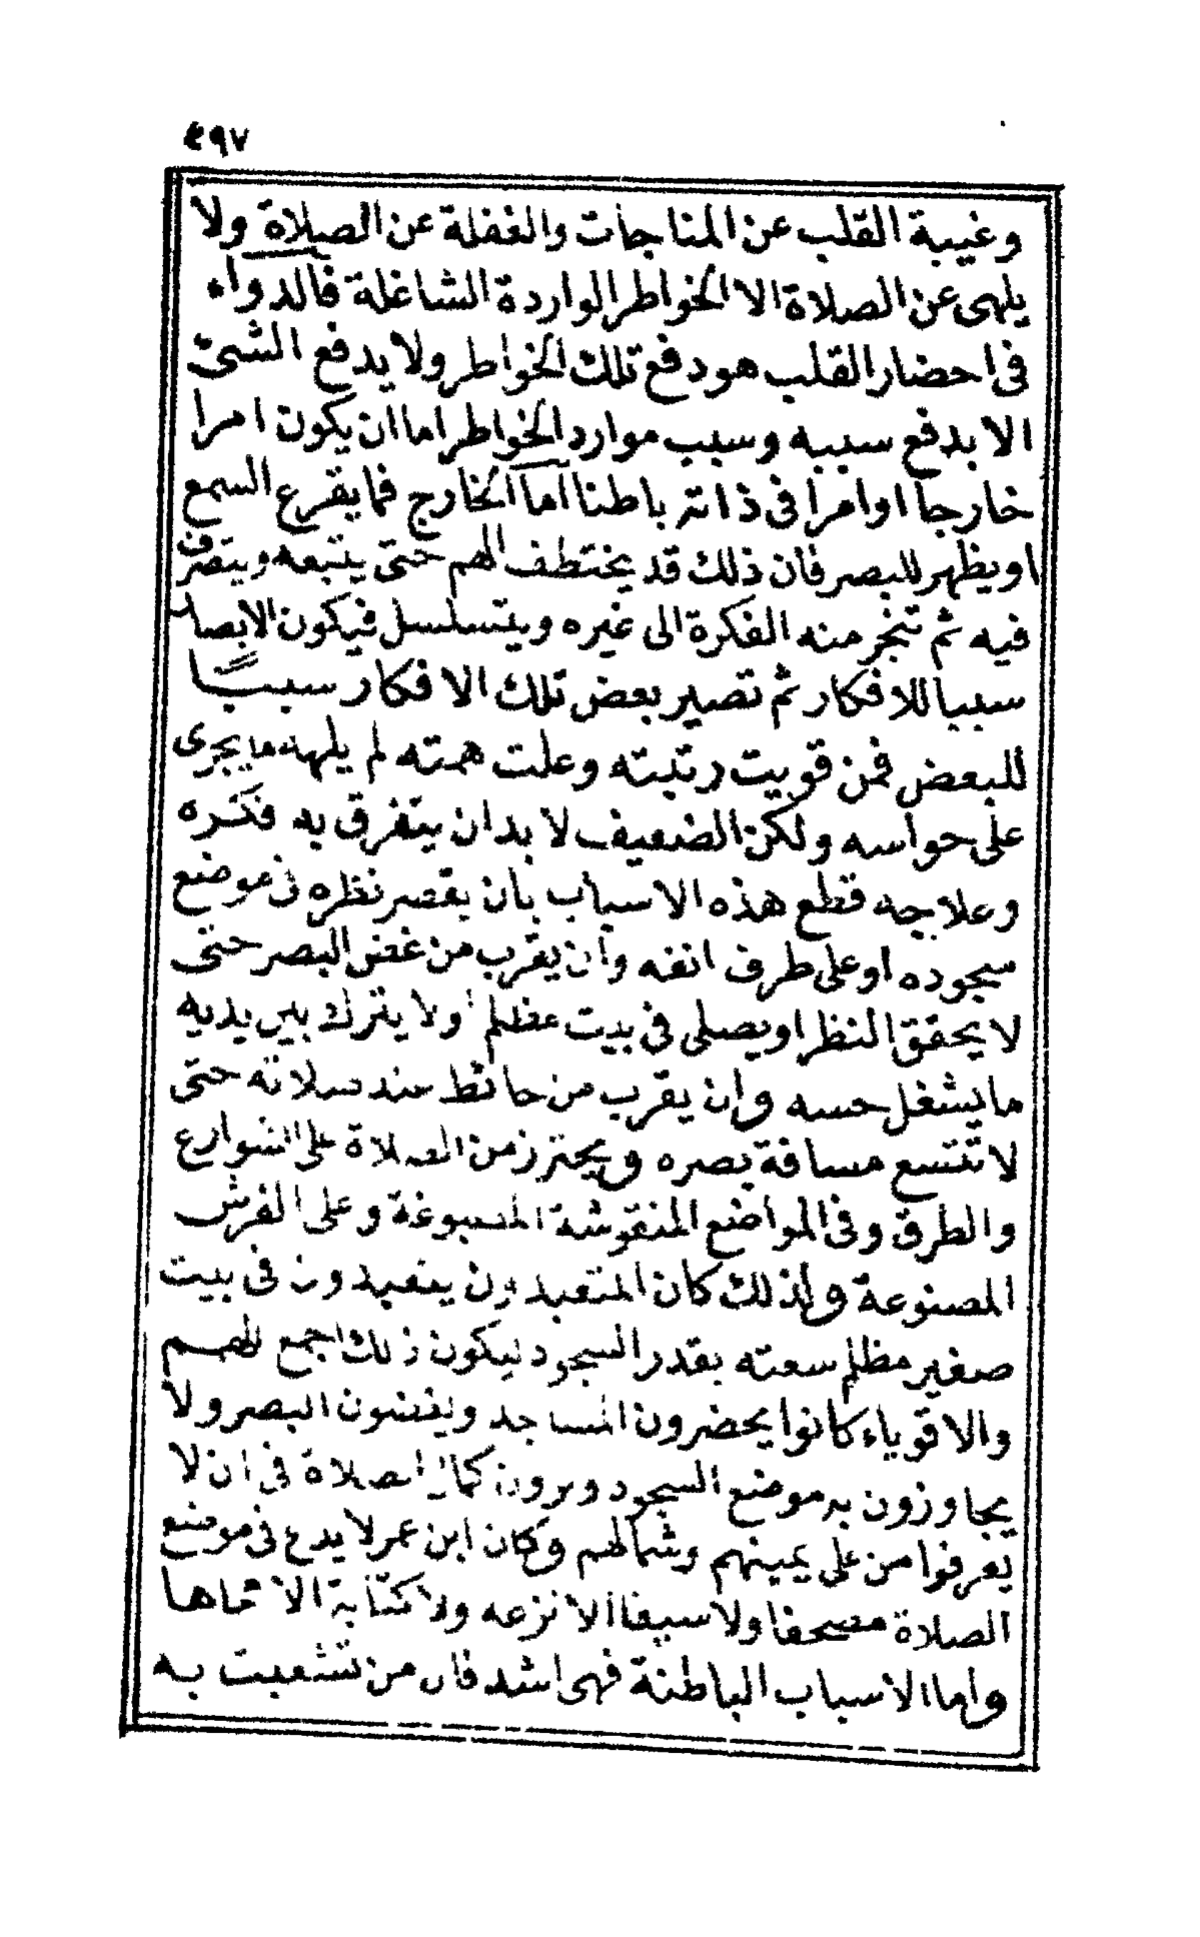 ٤٩٧
وغيبة القلب عن المناجات والغفلة عن الصلاة ولا
يلهى عن الصلاة الا الخواطر الواردة الشاغلة فالدواء
فى احضار القلب هو دفع تلك الخواطر ولا يدفع الشئ
الا بدفع سببه وسبب موارد الخواطر اما ان يكون امرا
خارجا او امرا فى ذاته باطنا اما الخارج فما يقرع السمع
او يظهر للبصر فان ذلك قد يختطف الهم حتى يتبعه ويتصرف
فيه ثم تنجر منه الفكرة الى غيره ويتسلسل فيكون الابصار
سببا للافكار ثم تصير بعض تلك الافكار سببًا
للبعض فمن قويت رتبته وعلت همته لم يلهه ما يجرى
على حواسه ولكن الضعيف لا بد ان يتفرق به فكره
وعلاجه قطع هذه الاسباب بان يقصر نظره فى موضع
سجوده او على طرف انفه وان يقرب من غض البصر حتى
لا يحقق النظر او يصلى فى بيت مظلم او لا يترك بين يديه
ما يشغل حسه وان يقرب من حائط عند صلاته حتى
لا تتسع مسافة بصره ويحترز من الصلاة على الشوارع
والطرق وفى المواضع المنقوشة المصبوغة وعلى الفرش
المصنوعة ولذلك كان المتعبدون يتعبدون فى بيت
صغير مظلم سعته بقدر السجود ليكون ذلك اجمع للهم
والاقوياء كانوا يحضرون المساجد ويغضون البصر ولا
يجاوزون به موضع السجود ويرون كمال الصلاة فى ان لا
يعرفوا من على يمينهم وشمالهم وكان ابن عمر لا يدع فى موضع
الصلاة مصحفا ولا سيفا الا نزعه ولا كتابة الا محاها
واما الاسباب الباطنة فهى اشد فان من تشعبت به